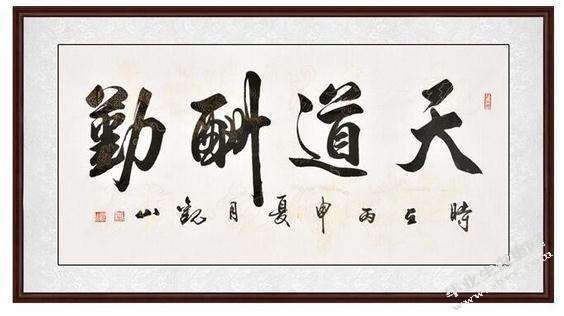 天道酬勤
時在丙申夏月山